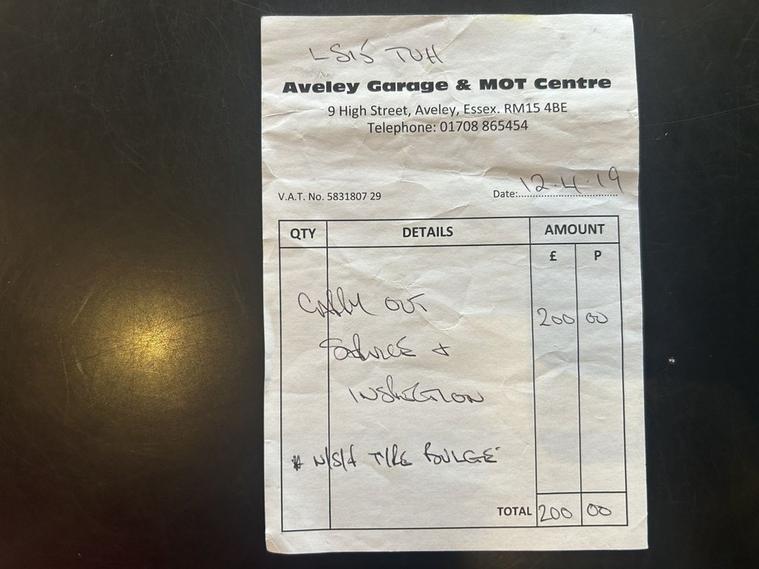 LS15 TUH
Aveley Garage & MOT Centre
9 High Street, Aveley, Essex. RM15 4BE
Telephone: 01708 865454
V.A.T. No. 5831807 29 Date: 12.4.19
QTY DETAILS AMOUNT
£ P
CARRY OUT 200 00
SERVICE +
INSPECTION
* N/S/F TYRE BULGE
TOTAL 200 00